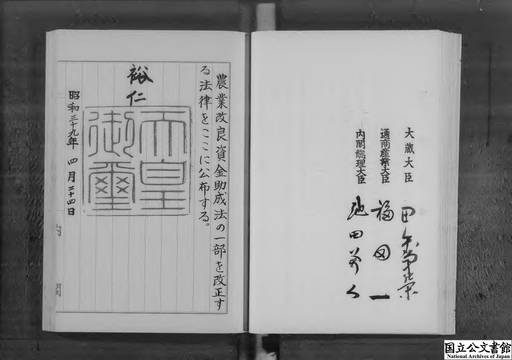 大蔵大臣 田中角榮
通商産業大臣 福田一
内閣総理大臣 池田勇人
農業改良資金助成法の一部を改正す
る法律をここに公布する。
裕仁
天皇御璽
昭和三十九年四月二十四日
国立公文書館
National Archives of Japan